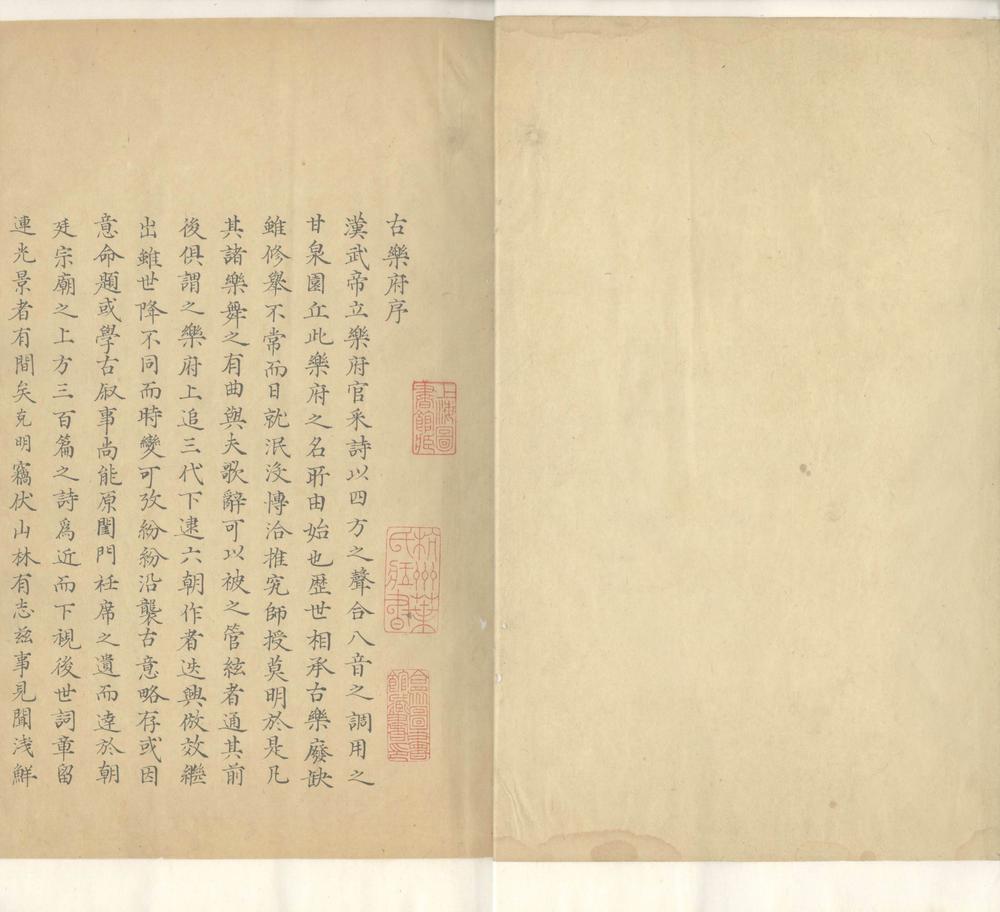 古樂府序
漢武帝立樂府官采詩以四方之聲合八音之調用之
甘泉園丘此樂府之名所由始也歷世相承古樂廢缺
雖修舉不常而日就泯沒博洽推究師授莫明於是凡
其諸樂舞之有曲與夫歌辭可以被之管絃者通其前
後俱謂之樂府上追三代下逮六朝作者迭興倣效繼
出雖世降不同而時變可攷紛紛沿襲古意略存或因
意命題或學古叙事尚能原閨門衽席之遺而達於朝
廷宗廟之上方三百篇之詩爲近而下視後世詞章留
連光景者有間矣克明竊伏山林有志茲事見聞淺鮮
上海圖書館藏
杭州葉氏藏書
合眾圖書館藏書印